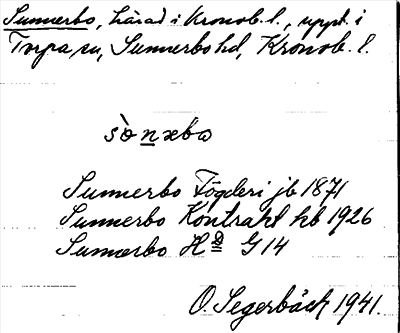 Sunnerbo, härad i Kronob. l., uppt. i
Torpa sn, Sunnerbo hd, Kronob. l.
sònxbo
Sunnerbo Fögderi jb 1871
Sunnerbo Kontrakt hb 1926
Sunnerbo HD G 14
O. Segerbäck 1941.